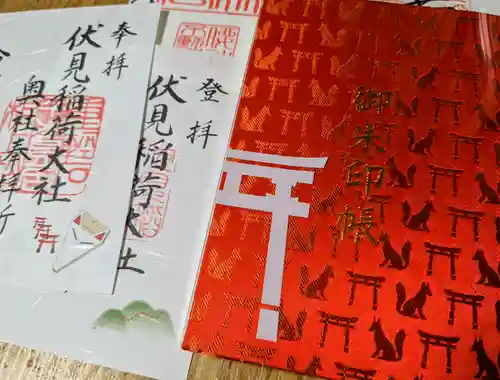 奉拝
伏見稲荷大社
奥社奉拝所
登拝
伏見稲荷大社
御朱印帳